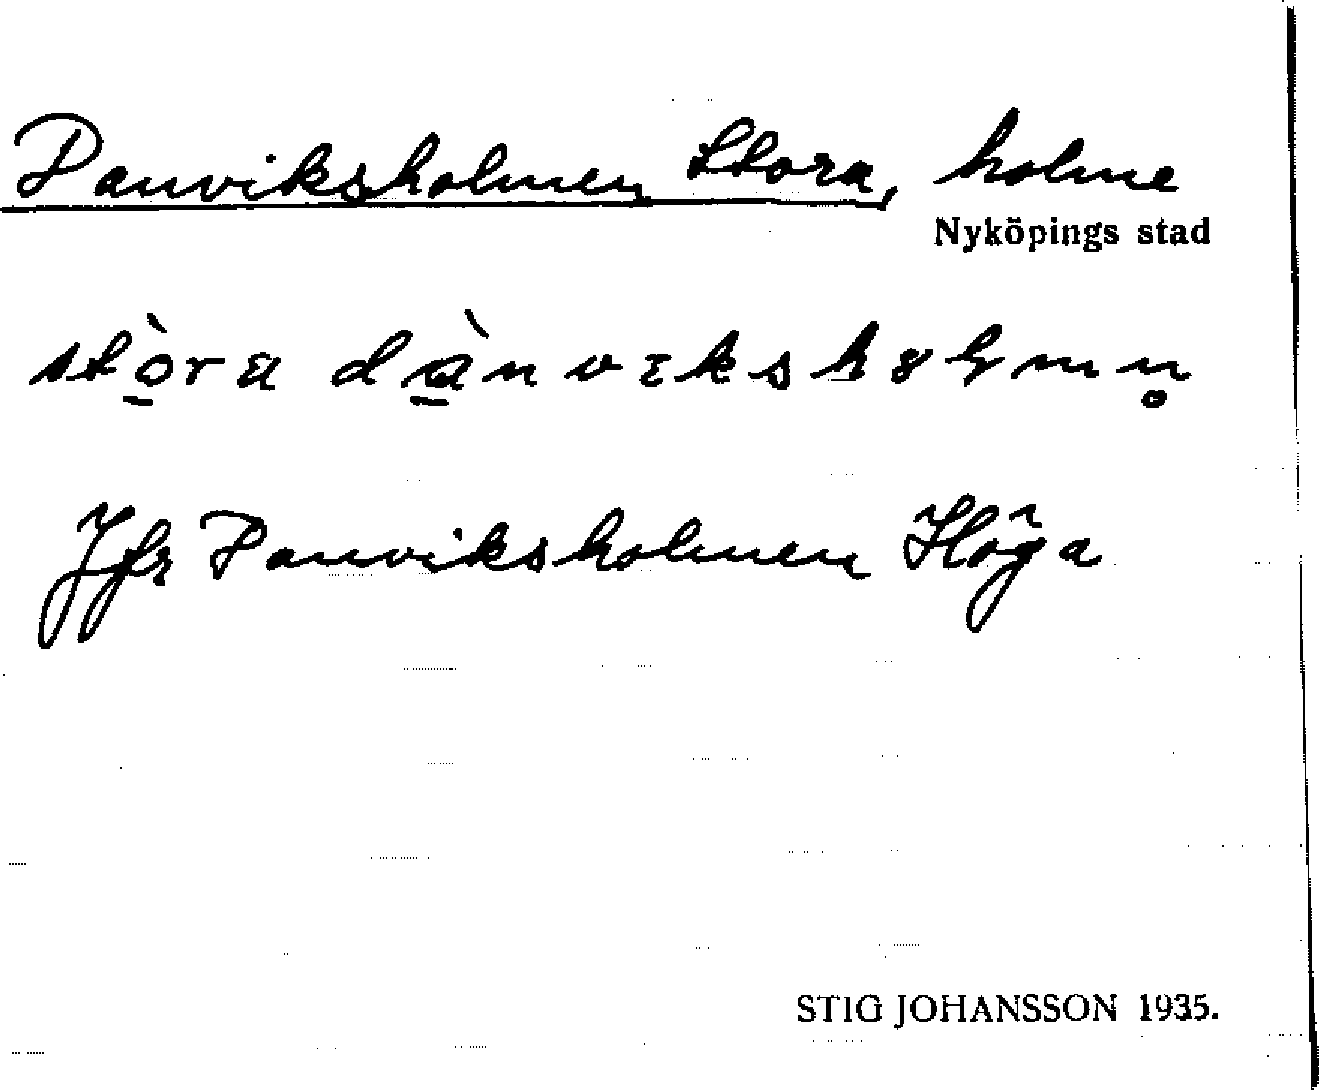 Danviksholmen Stora, holme
Nyköpings stad
stòra dànvikshɵlmn̥
Jfr Danviksholmen Höga
STIG JOHANSSON 1935.